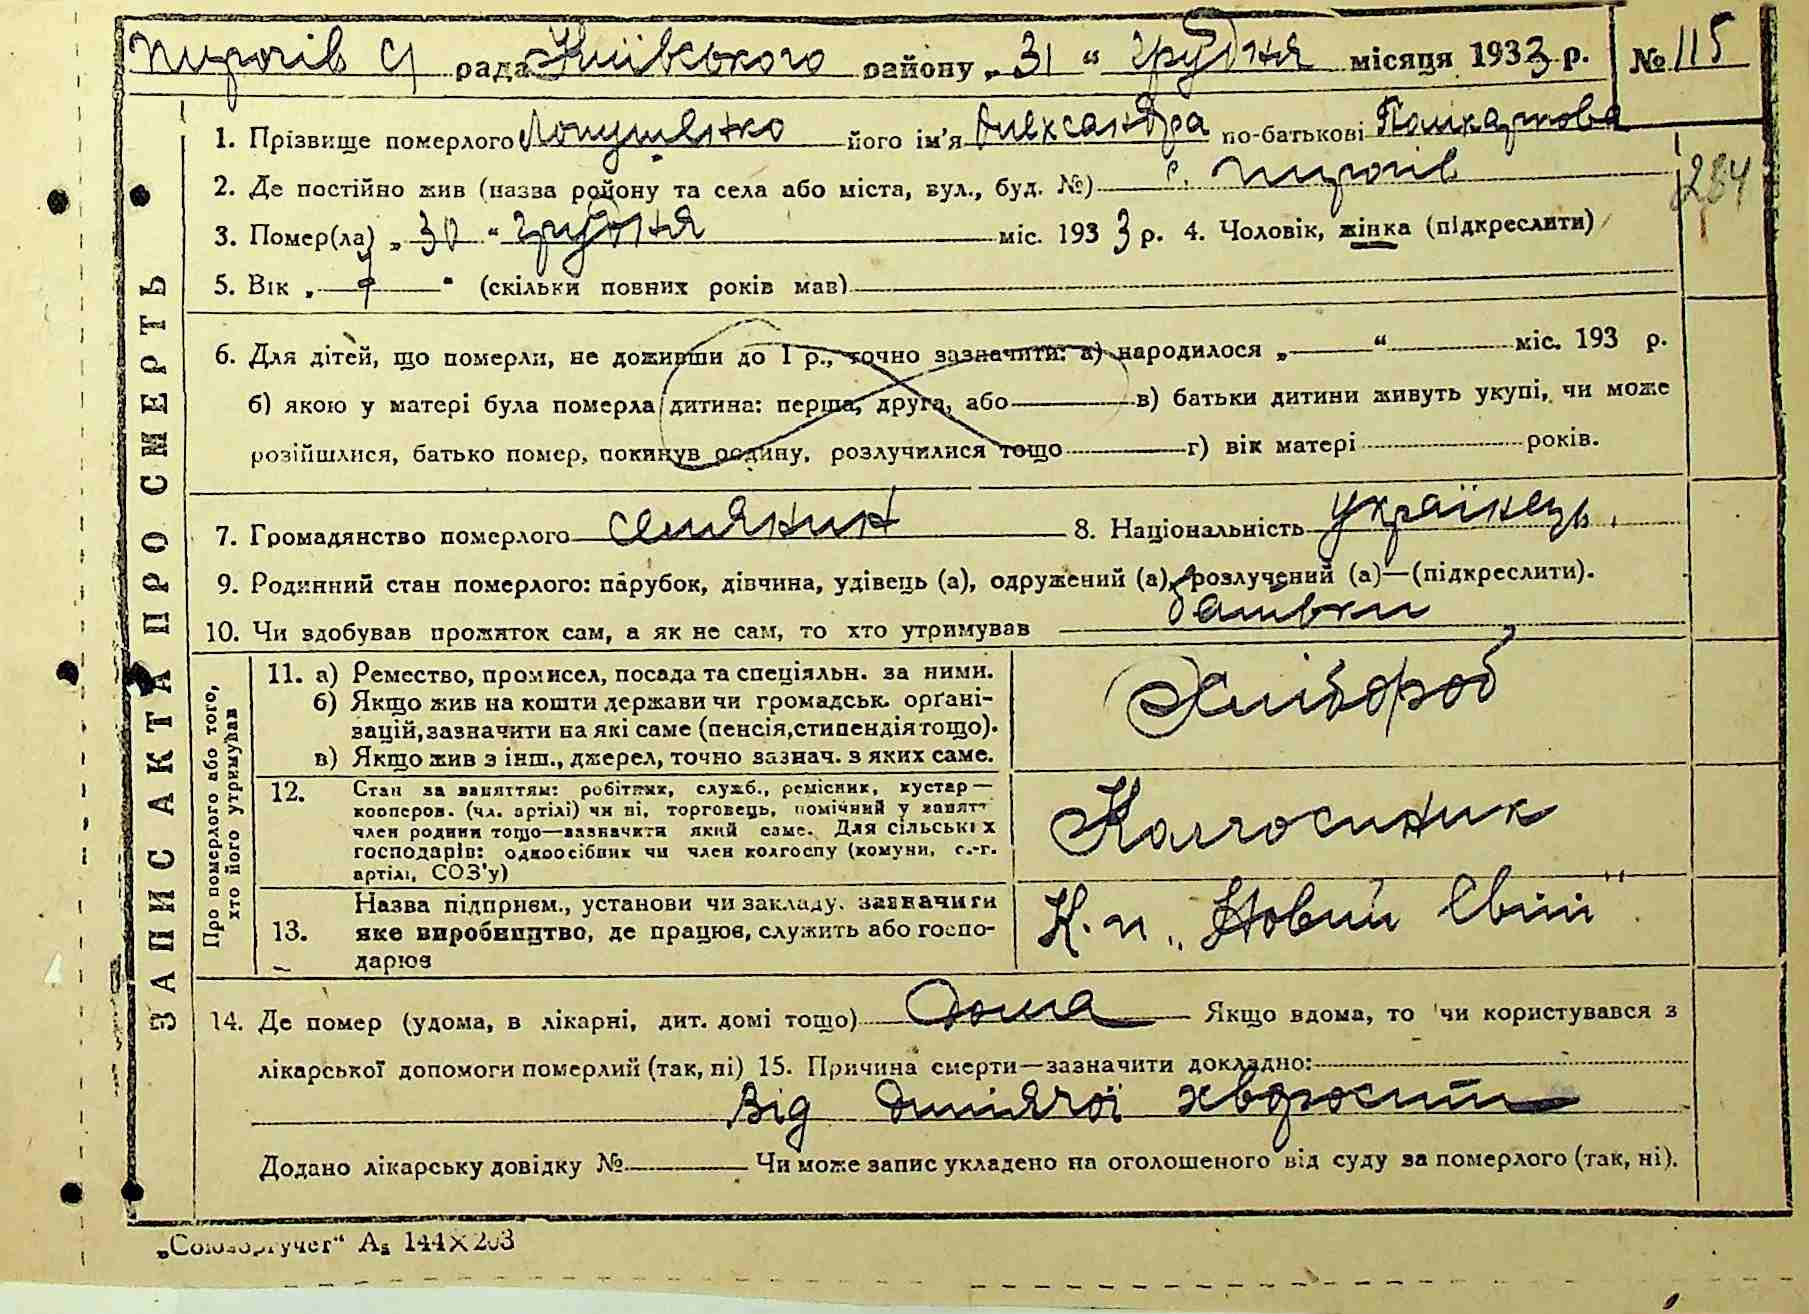 Пирогів с/ рада Київського району „31“ грудня місяця 1933 р. № 115
1. Прізвище померлого Лопушенко його ім'я Олександра по-батькові Полікарпова
284
2. Де постійно жив (назва району та села або міста, вул., буд. №) с. Пирогів
3. Помер(ла) „30“ грудня міс. 1933 р. 4. Чоловік, жінка (підкреслити)
5. Вік „7“ (скільки повних років мав)
6. Для дітей, що померли, не доживши до 1 р., точно зазначити: а) народилося „ “ міс. 193 р.
б) якою у матері була померла дитина: перша, друга, або в) батьки дитини живуть укупі, чи може
розійшлися, батько помер, покинув родину, розлучилися тощо г) вік матері років.
7. Громадянство померлого селянин 8. Національність українець
9. Родинний стан померлого: парубок, дівчина, удівець (а), одружений (а), розлучений (а)—(підкреслити).
10. Чи здобував прожиток сам, а як не сам, то хто утримував батьки
ЗАПИС АКТА ПРО СМЕРТЬ
Про померлого або того,
хто його утримував
11. а) Ремество, промисел, посада та спеціяльн. за ними.
б) Якщо жив на кошти держави чи громадськ. орґані-
зацій, зазначити на які саме (пенсія, стипендія тощо).
в) Якщо жив з інш., джерел, точно зазнач. з яких саме.
Хлібороб
12. Стан за заняттям: робітник, служб., ремісник, кустар—
кооперов. (чл. артілі) чи ні, торговець, помічний у занятт
член родини тощо—зазначити який саме. Для сільських
господарів: одноосібник чи член колгоспу (комуни, с.-г.
артілі, СОЗ'у)
Колгоспник
13. Назва підприєм., установи чи закладу, зазначити
яке виробництво, де працює, служить або госпо-
дарює
К. п. „Новий Світ“
14. Де помер (удома, в лікарні, дит. домі тощо) Дома Якщо вдома, то чи користувався з
лікарської допомоги померлий (так, ні) 15. Причина смерти—зазначити докладно:
Від дитячої хворости
Додано лікарську довідку № Чи може запис укладено на оголошеного від суду за померлого (так, ні).
„Союзоргучет“ А₅ 144×203